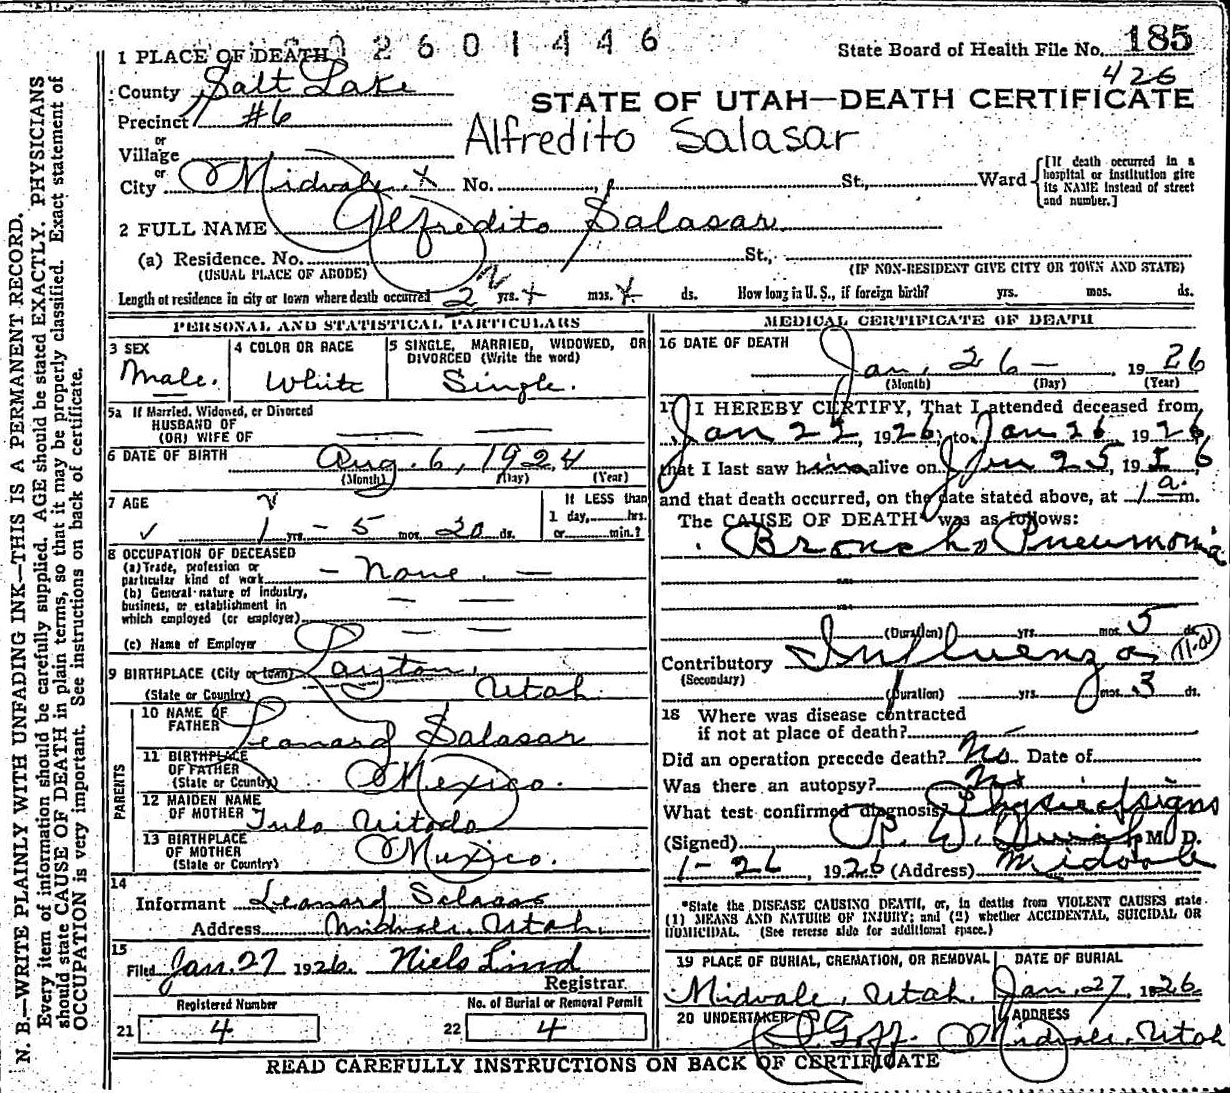 N. B.—WRITE PLAINLY WITH UNFADING INK—THIS IS A PERMANENT RECORD.
Every item of information should be carefully supplied. AGE should be stated EXACTLY. PHYSICIANS
should state CAUSE OF DEATH in plain terms, so that it may be properly classified. Exact statement of
OCCUPATION is very important. See instructions on back of certificate.
02601446
State Board of Health File No. 185
426
1 PLACE OF DEATH
County Salt Lake
STATE OF UTAH—DEATH CERTIFICATE
Precinct #6
Alfredito Salasar
or
Village
or
City Midvale x No. St., Ward
[If death occurred in a
hospital or institution give
its NAME instead of street
and number.]
2 FULL NAME Alfredito Salasar
(a) Residence. No. St.,
(USUAL PLACE OF ABODE) (IF NON-RESIDENT GIVE CITY OR TOWN AND STATE)
Length of residence in city or town where death occurred 2 yrs. x mos. x ds. How long in U. S., if foreign birth? yrs. mos. ds.
PERSONAL AND STATISTICAL PARTICULARS
3 SEX
Male.
4 COLOR OR RACE
White
5 SINGLE, MARRIED, WIDOWED, OR
DIVORCED (Write the word)
Single.
5a If Married, Widowed, or Divorced
HUSBAND OF
(OR) WIFE OF
6 DATE OF BIRTH Aug. 6, 1924
(Month) (Day) (Year)
7 AGE
1 yrs. 5 mos. 20 ds.
If LESS than
1 day, hrs.
or min.?
8 OCCUPATION OF DECEASED
(a) Trade, profession or
particular kind of work — None. —
(b) General nature of industry,
business, or establishment in
which employed (or employer)
(c) Name of Employer
9 BIRTHPLACE (City or town) Layton,
(State or Country) Utah
PARENTS
10 NAME OF
FATHER Leonard Salasar
11 BIRTHPLACE
OF FATHER
(State or Country) Mexico.
12 MAIDEN NAME
OF MOTHER
13 BIRTHPLACE
OF MOTHER
(State or Country) Mexico.
14
Informant Leonard Salasar
Address Midvale Utah.
15
Filed Jan. 27 1926. Niels Lind
Registrar.
Registered Number
21 4
No. of Burial or Removal Permit
22 4
MEDICAL CERTIFICATE OF DEATH
16 DATE OF DEATH
Jan. 26 — , 1926
(Month) (Day) (Year)
17 I HEREBY CERTIFY, That I attended deceased from
Jan 22, 1926, to Jan 26 1926
that I last saw him alive on Jan 25, 1926
and that death occurred, on the date stated above, at 1 a m.
The CAUSE OF DEATH* was as follows:
Broncho Pneumonia
(Duration) yrs. mos. 5 ds.
Contributory Influenza
(Secondary)
(Duration) yrs. mos. 3 ds.
18 Where was disease contracted
if not at place of death?
Did an operation precede death? No Date of
Was there an autopsy? No
What test confirmed diagnosis? Physical signs
(Signed) M. D.
1-26, 1926 (Address) Midvale
*State the DISEASE CAUSING DEATH, or, in deaths from VIOLENT CAUSES state
(1) MEANS AND NATURE OF INJURY; and (2) whether ACCIDENTAL, SUICIDAL OR
HOMICIDAL. (See reverse side for additional space.)
19 PLACE OF BURIAL, CREMATION, OR REMOVAL
Midvale, Utah.
DATE OF BURIAL
Jan. 27, 1926.
20 UNDERTAKER
Goff.
ADDRESS
Midvale, Utah
READ CAREFULLY INSTRUCTIONS ON BACK OF CERTIFICATE